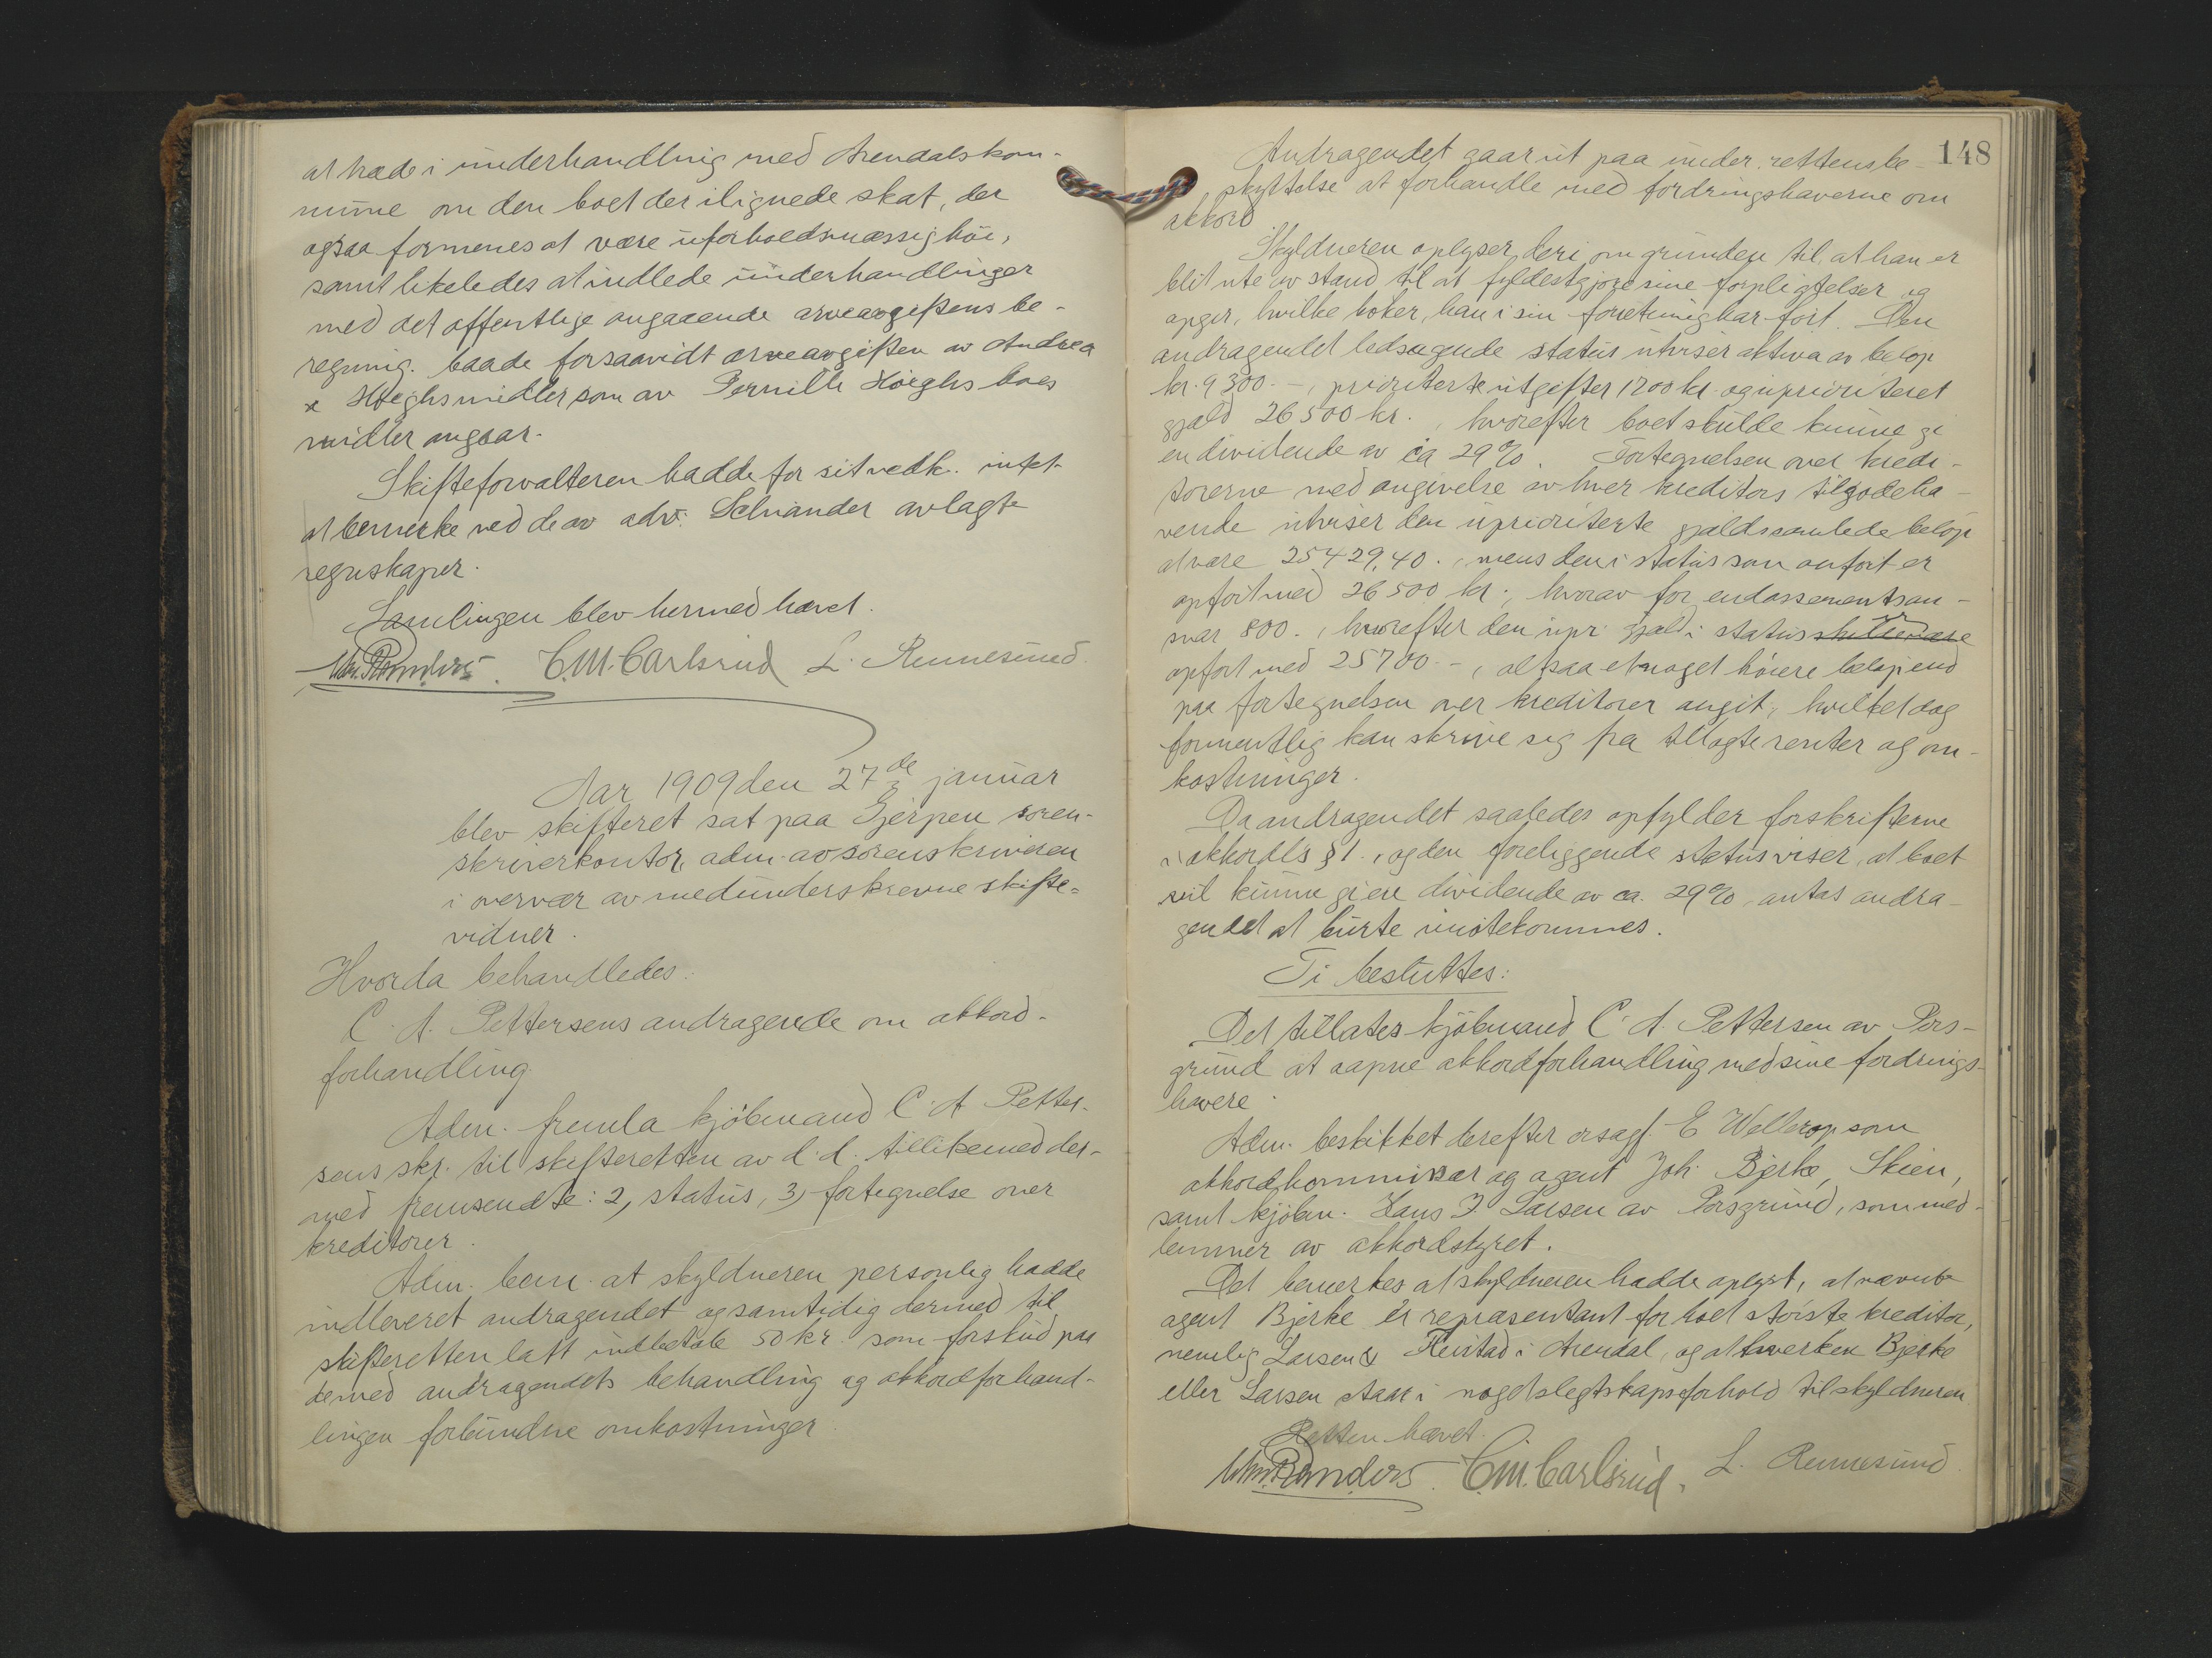 at træde i underhandling med Arendals kom-
mune om den boet der ilignede skat, der
ogsaa formenes at være uforholdsmæssig høi,
samt likeledes at indlede underhandlinger
med det offentlige angaaende arveavgiftens be-
regning. baade forsaavidt arveavgiften av Andrea
Høeghs midler som av Pernille Høeghs boes
midler angaar.
Skifteforvalteren hadde for sit vedk. intet
at bemerke ved de av adv. Selviander avlagte
regnskaper.
Samlingen blev hermed hævet.
C.M. Carlsrud L. Rennesund
Aar 1909 den 27de januar
blev skifteret sat paa Gjerpen soren-
skriverkontor, adm. av sorenskriveren
i overvær av medunderskrevne skifte-
vidner.
Hvorda behandledes:
C. A. Pettersens andragende om akkord-
forhandling
Adm. fremla kjøbmand C. A. Petter-
sens skr. til skifteretten av d. d. tillikemed der-
med fremsendte: 2, status, 3, fortegnelse over
kreditorer.
Adm. bem. at skyldneren personlig hadde
indleveret andragendet og samtidig dermed til
skifteretten latt indbetale 50 kr. som forskud paa
de med andragendets behandling og akkordforhand-
lingen forbundne omkostninger
148
Andragendet gaar ut paa under rettens be-
skyttelse at forhandle med fordringshaverne om
akkord
Skyldneren oplyser deri om grunden til at han er
blit ute av stand til at fyldestgjøre sine forpligtelser og
opger, hvilke bøker, han i sin forretning har ført. Den
andragendet ledsagende status utviser aktiva av beløp
kr. 9300.-, prioriterte utgifter 1700 kr. og uprioriteret
gjæld 26500 kr., hvorefter boet skulde kunne gi
en dividende av ca 29%. Fortegnelsen over kredi-
torerne med angivelse av hver kreditors tilgodeha-
vende utviser den uprioriterte gjælds samlede beløp
at være 25429,40., mens den i status som anført er
opført med 26500 kr., hvorav for endossementsan-
svar 800., hvorefter den upr. gjæld i status skulde være er
opført med 25700.-, altsaa et noget høiere beløp end
paa fortegnelsen over kreditorer angit, hvilket dog
formentlig kan skrive seg fra tillagte renter og om-
kostninger.
Da andragendet saaledes opfylder forskrifterne
i akkordls § 1., og den foreliggende status viser, at boet
vil kunne gi en dividende av ca. 29%, antas andra-
gendet at burte imøtekommes.
Ti besluttes:
Det tillates kjøbmand C. A. Pettersen av Pors-
grund at aapne akkordforhandling med sine fordrings-
havere.
Adm. beskikket derefter orsagf. E Wellerop som
akkordkommissær og agent Joh. Bjerke, Skien,
samt kjøbm. Hans J. Larsen av Porsgrund, som med-
lemmer av akkordstyret.
Det bemerkes at skyldneren hadde oplyst, at nævnte
agent Bjerke er repræsentant for boet største kreditor,
nemlig Larsen & Heistad i Arendal, og at hverken Bjerke
eller Larsen staar i noget slegtskapsforhold til skyldneren
Retten hævet.
C.M. Carlsrud. L. Rennesund